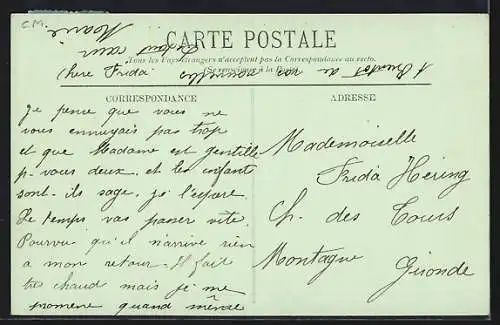 C.M.
CARTE POSTALE
Tous les Pays étrangers n'acceptent pas la Correspondance au recto.
(Se renseigner à la Poste).
Chère Frida
A Bientôt de vos nouvelles
Marie
CORRESPONDANCE
ADRESSE
Je pense que vous ne
vous ennuyais pas trop
et que Madame est gentille
p. vous deux, et les enfants
sont-ils sage, je l'espère.
Le temps vas passer vite.
Pourvu qu'il n'arrive rien
a mon retour. Il fait
tres chaud mais je me
promene quand même
Mademoiselle
Frida Hering
Ch. des Tours
Montagne
Gironde